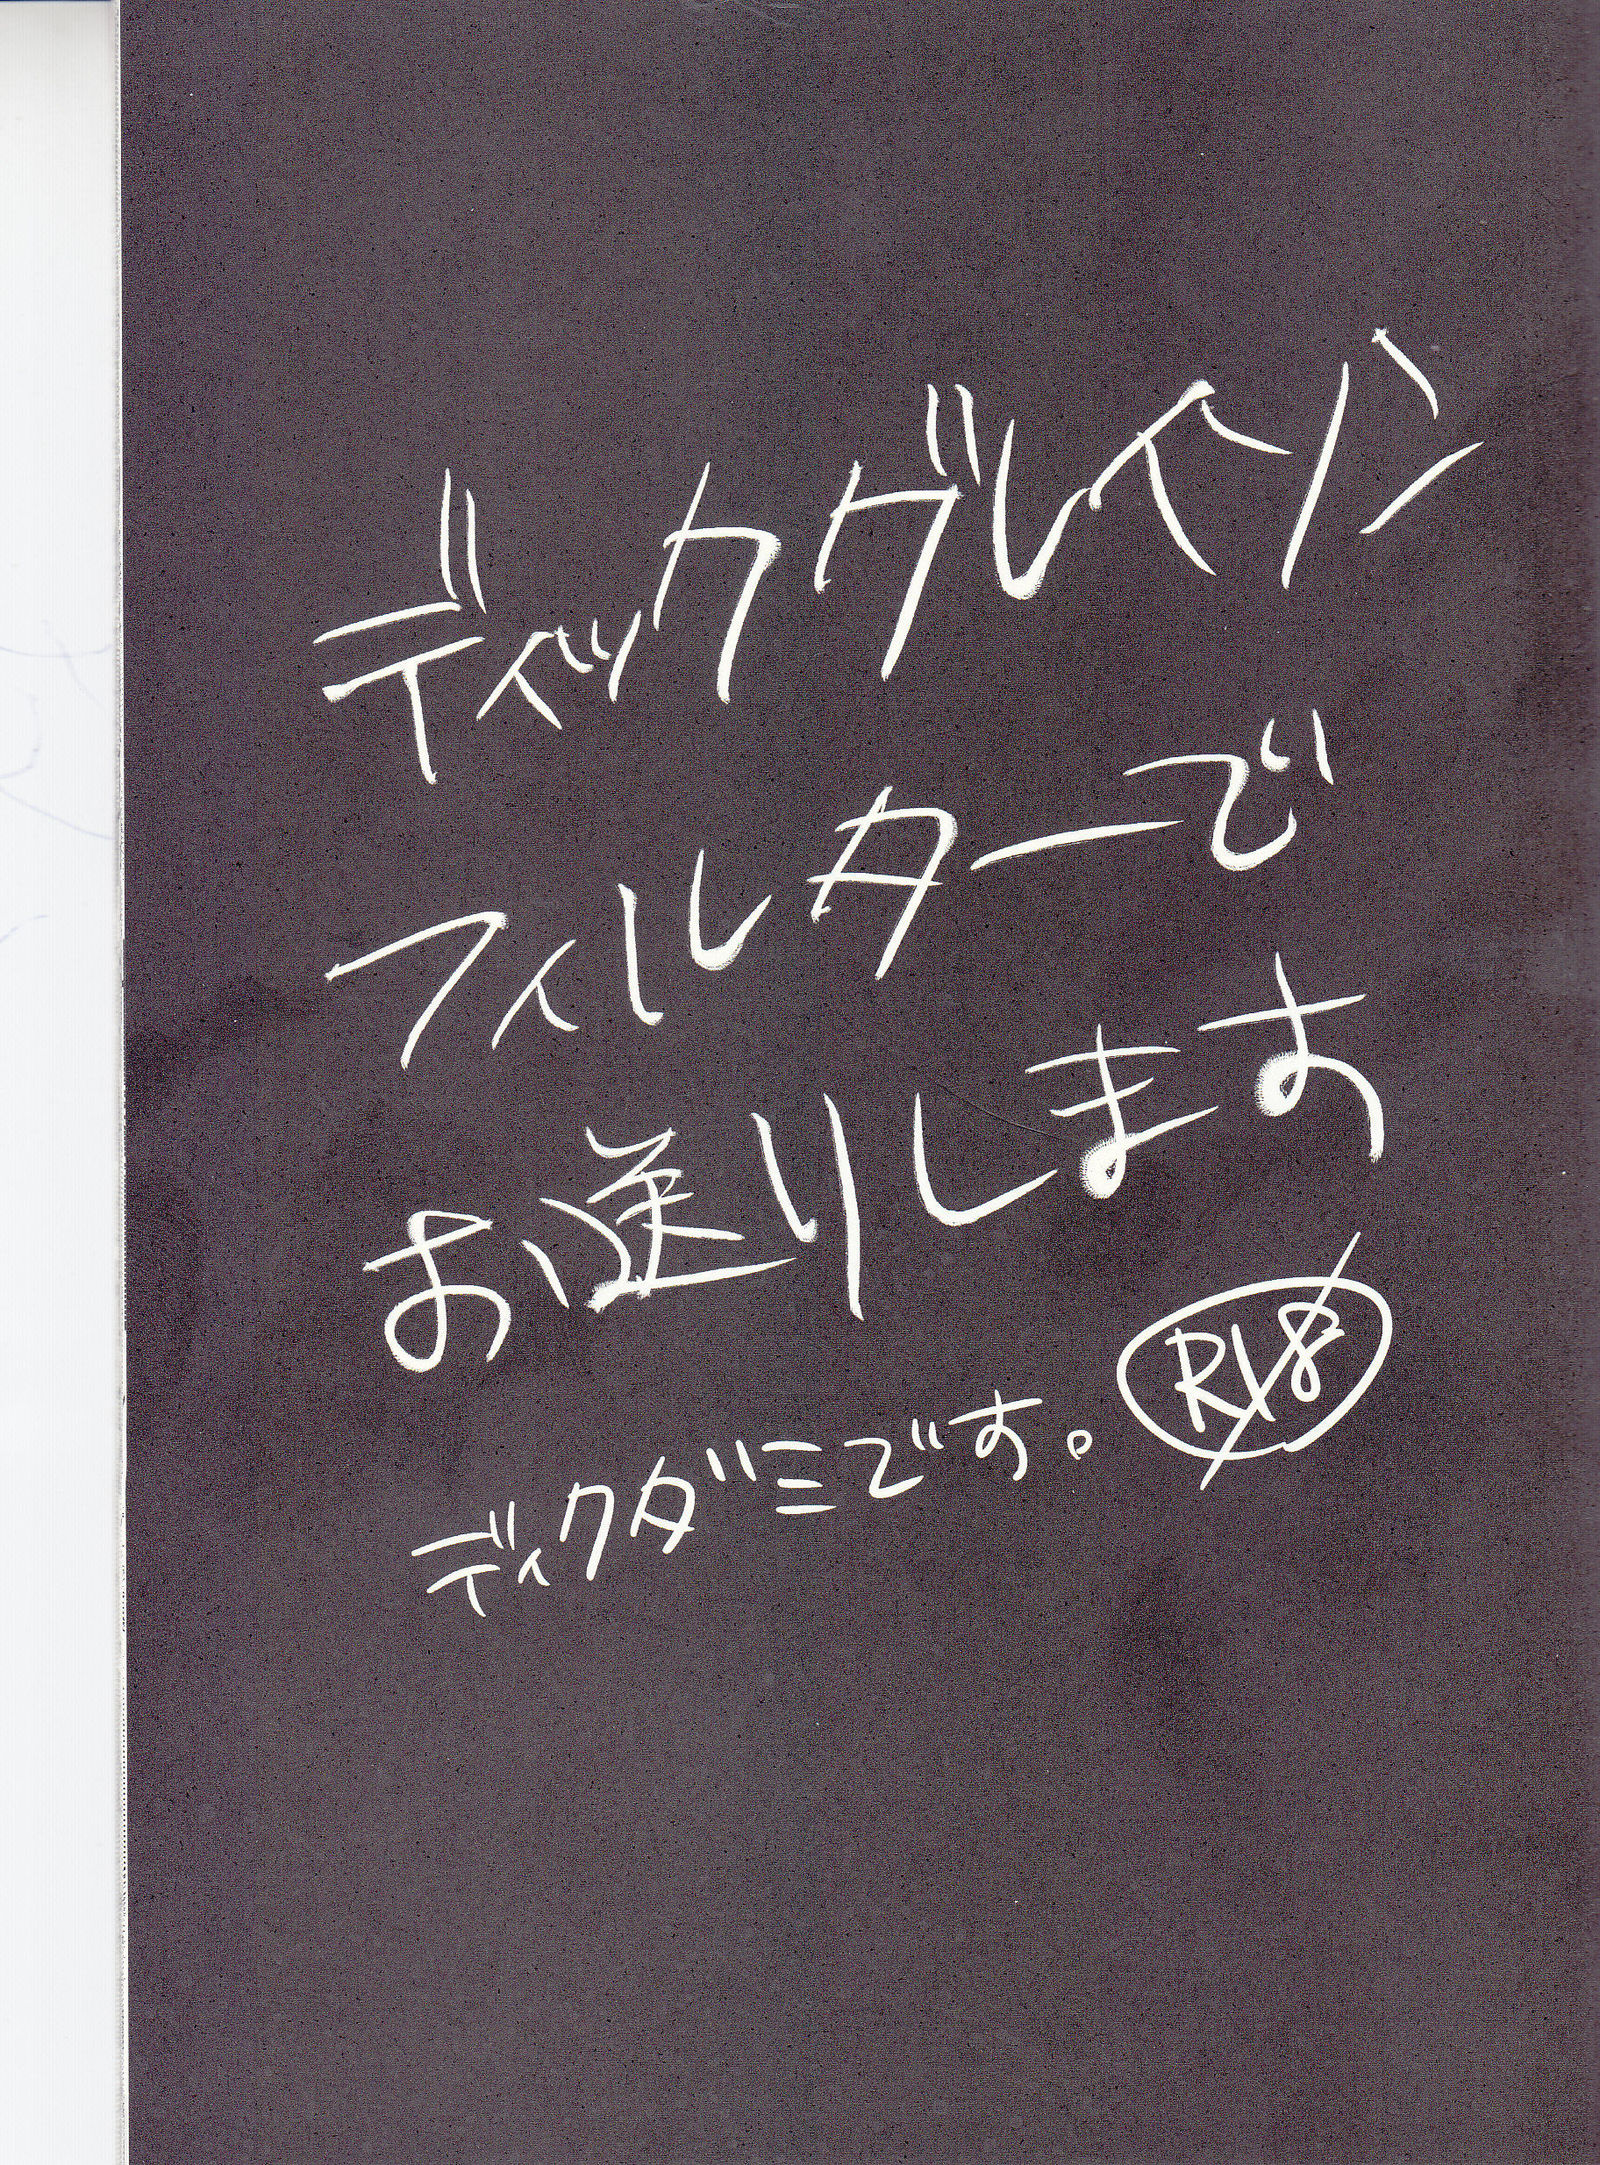 ディックグレイソン
フィルターで
お送りします
ディクダミです。 R18